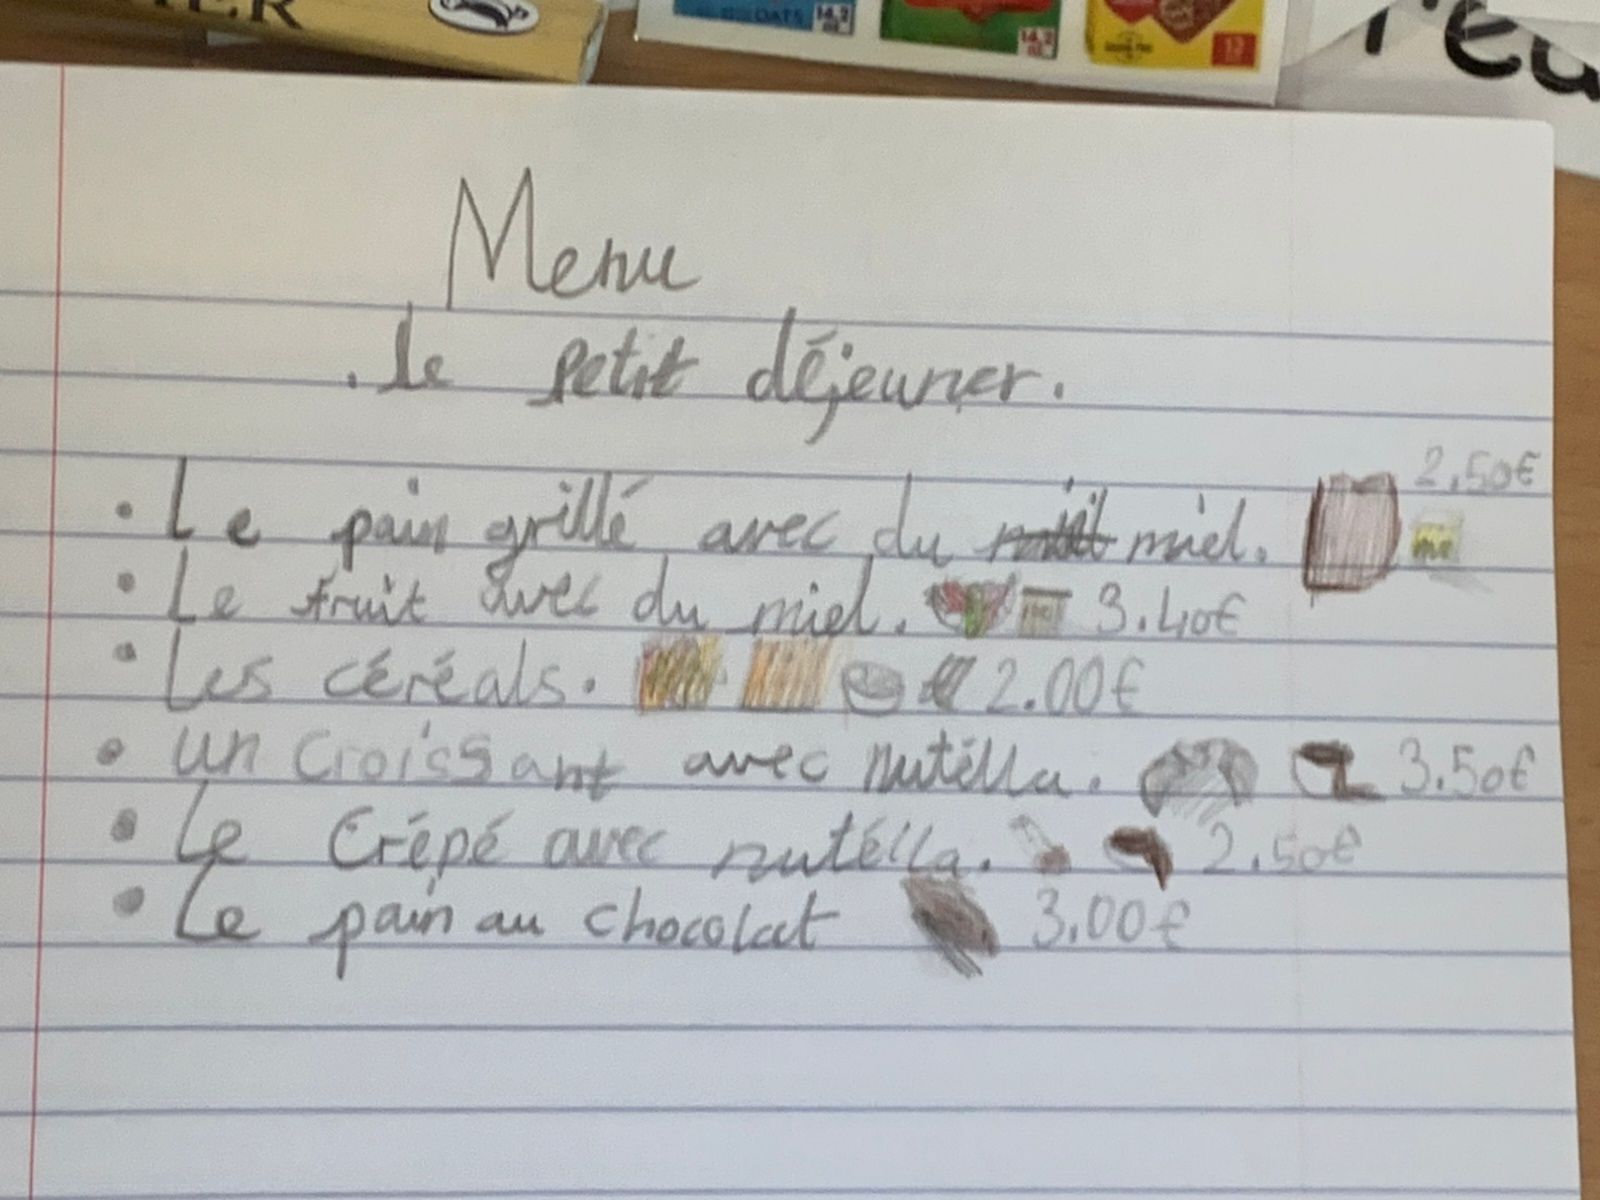 ER
OATS 14.2 oz
14.2 oz
12
rea
Menu
. le petit déjeuner.
• Le pain grillé avec du miel. 2.50€
• Le fruit avec du miel. 3.40€
• Les céréals. 2.00€
• un croissant avec nutélla. 3.50€
• Le Crépé avec nutélla. 2.50€
• Le pain au chocolat 3.00€